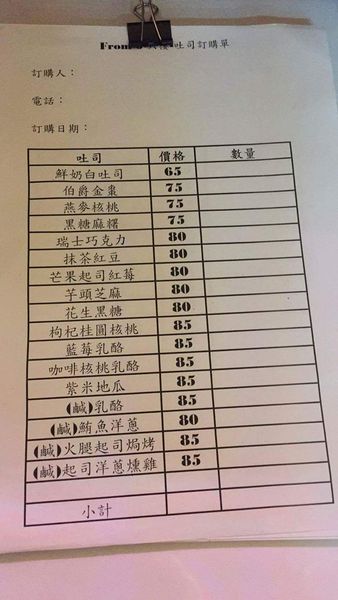 From 吐司訂購單
訂購人：
電話：
訂購日期：
吐司 價格 數量
鮮奶白吐司 65
伯爵金棗 75
燕麥核桃 75
黑糖麻糬 75
瑞士巧克力 80
抹茶紅豆 80
芒果起司紅莓 80
芋頭芝麻 80
花生黑糖 80
枸杞桂圓核桃 85
藍莓乳酪 85
咖啡核桃乳酪 85
紫米地瓜 85
(鹹)乳酪 85
(鹹)鮪魚洋蔥 80
(鹹)火腿起司焗烤 85
(鹹)起司洋蔥燻雞 85
小計